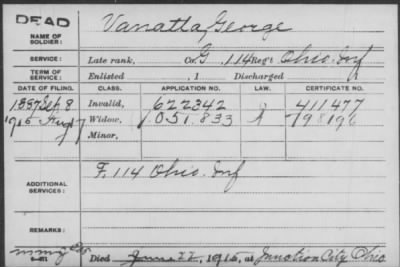 DEAD
NAME OF SOLDIER:
Vanatta, George
SERVICE:
Late rank, Co. G, 114 Reg't Ohio Inf
TERM OF SERVICE:
Enlisted , 1 Discharged
DATE OF FILING. CLASS. APPLICATION NO. LAW. CERTIFICATE NO.
1887 Sep 8 Invalid, 622342 411477
1915 Aug 17 Widow, 1051.833 798196
Minor,
F. 114 Ohio. Inf
ADDITIONAL SERVICES:
REMARKS:
Died June 22, 1915, at Junction City Ohio